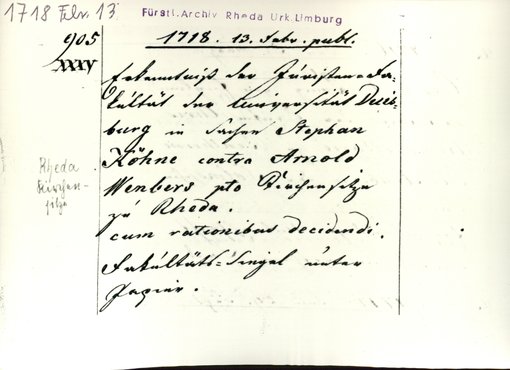 1718 Febr. 13
Fürstl. Archiv Rheda Urk. Limburg
905
XXXV
1718. 13. Febr. publ.
Erkenntniß der Juristen-Fa-
kultät der Universität Duis-
burg in Sachen Stephan
Köhne contra Arnold
Wenbers pto Kirchensitze
zu Rheda.
cum rationibus decidendi.
Fakultäts-Siegel unter
Papier.
Rheda
Kirchen-
sitze